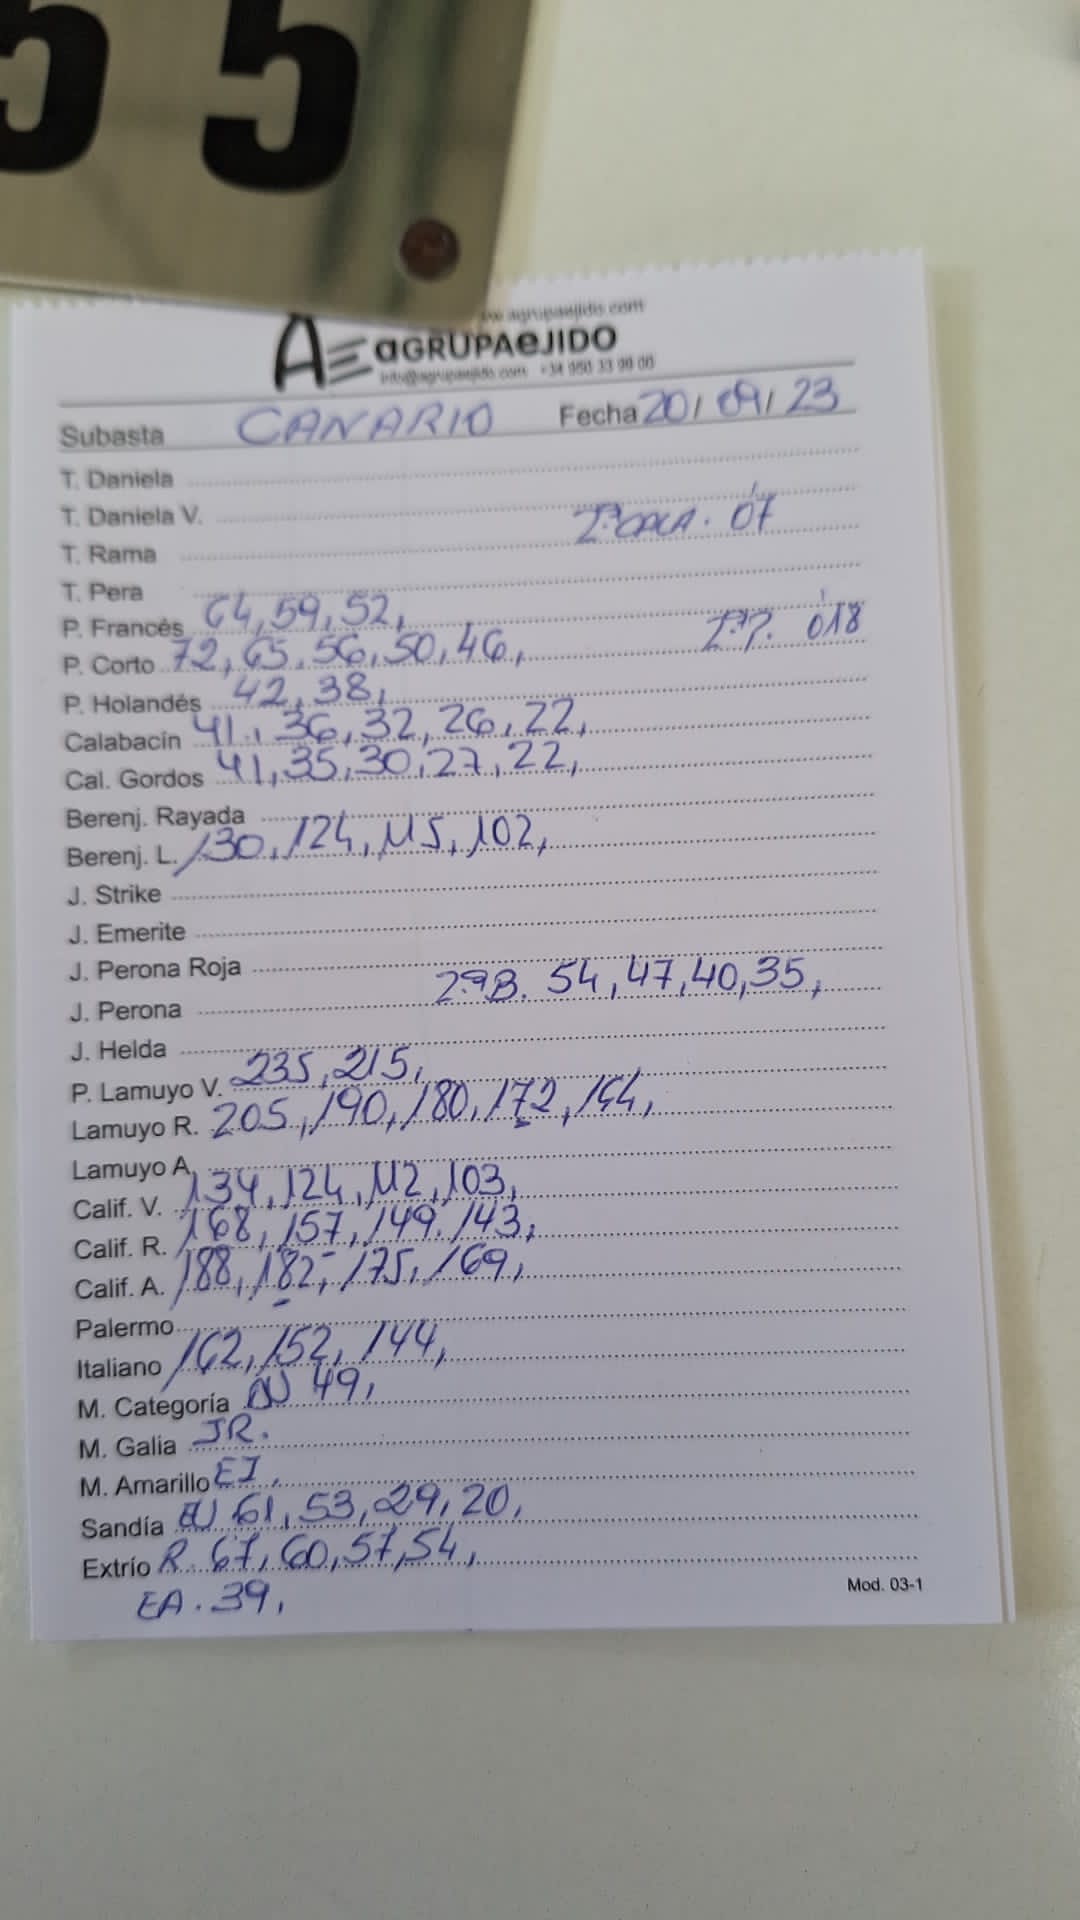 55
www.agrupaejido.com
AE aGRUPAeJIDO
info@agrupaejido.com +34 950 33 90 00
Subasta CANARIO Fecha 20/09/23
T. Daniela
T. Daniela V.
2ª CALA. 0'7
T. Rama
T. Pera
P. Francés 64, 59, 52,
2ª P. 0'18
P. Corto 72, 65, 56, 50, 46,
P. Holandés 42, 38,
Calabacín 41, 36, 32, 26, 22,
Cal. Gordos 41, 35, 30, 27, 22,
Berenj. Rayada
Berenj. L. 130, 124, 115, 102,
J. Strike
J. Emerite
J. Perona Roja
J. Perona 2ª B. 54, 47, 40, 35,
J. Helda
P. Lamuyo V. 235, 215,
Lamuyo R. 205, 190, 180, 172, 164,
Lamuyo A.
Calif. V. 134, 124, 112, 103,
Calif. R. 168, 157, 149, 143,
Calif. A. 188, 182, 175, 169,
Palermo
Italiano 162, 152, 144,
M. Categoría 49,
M. Galia JR.
M. Amarillo EJ.
Sandía 61, 53, 29, 20,
Extrío R. 67, 60, 57, 54,
EA. 39,
Mod. 03-1